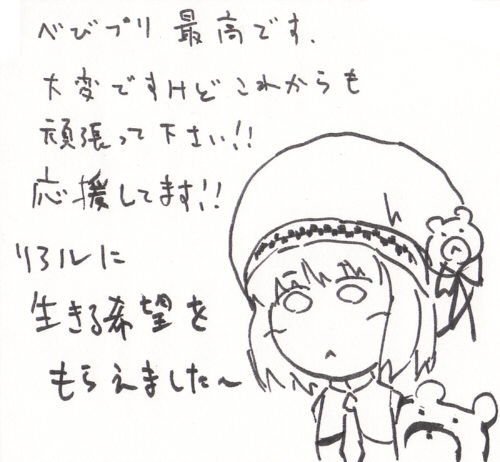 べびプリ 最高です.
大変ですけどこれからも
頑張って下さい!!
応援してます!!
リアルに
生きる希望を
もらえました〜